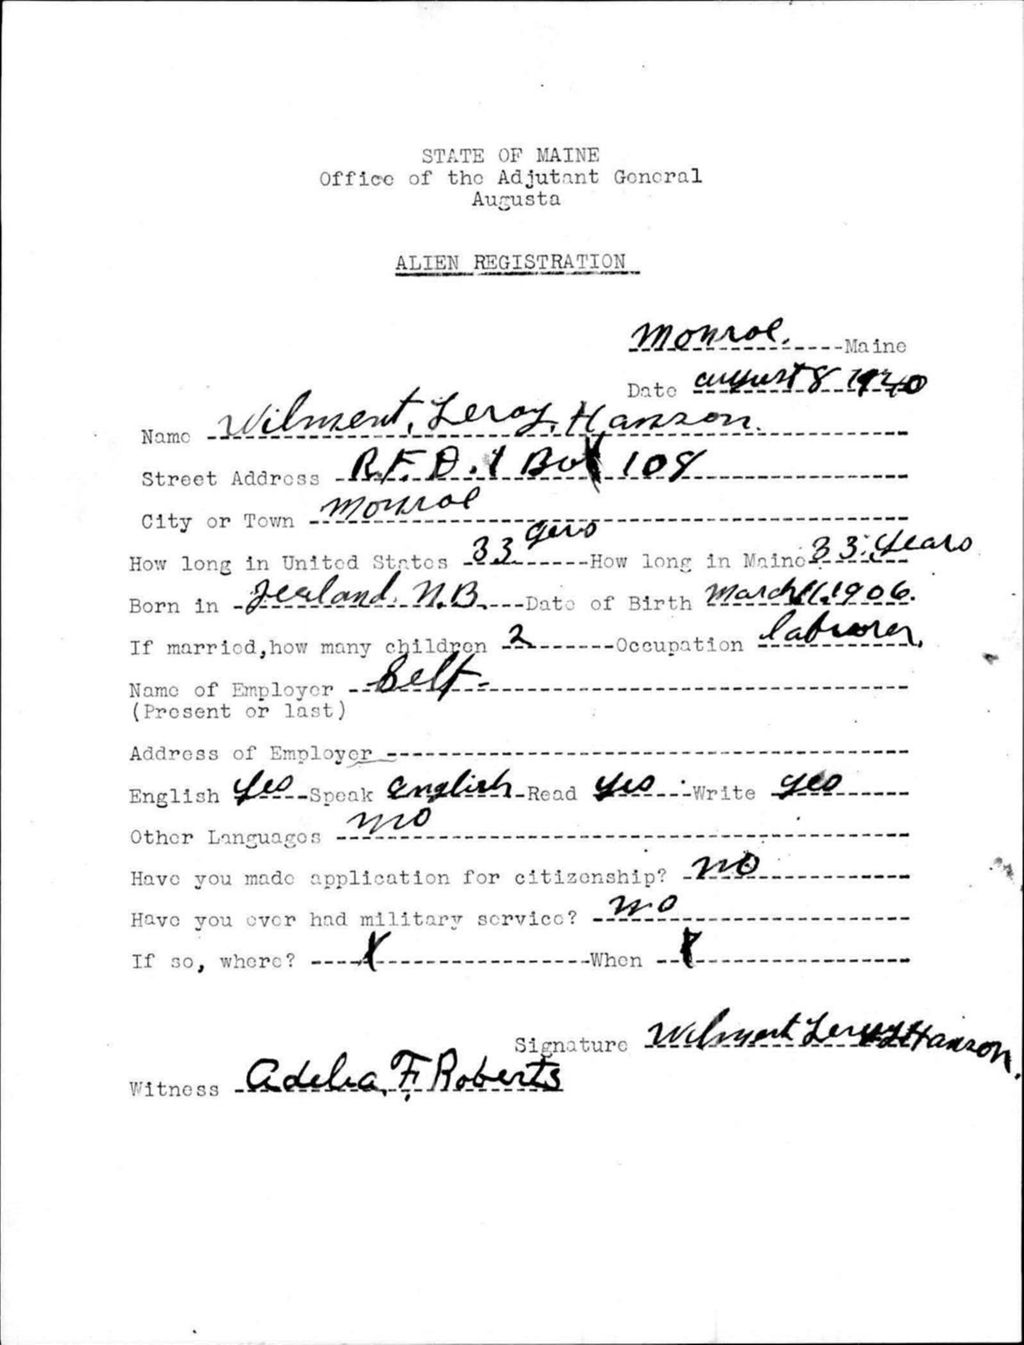 STATE OF MAINE
Office of the Adjutant General
Augusta
ALIEN REGISTRATION
Monroe. Maine
Date August 8 1940
Name Wilment, Leroy, Hanson.
Street Address R.F.D. 1 Box 108
City or Town Monroe
How long in United States 33 years How long in Maine 33 years
Born in Zealand. N.B. Date of Birth March 11, 1906.
If married, how many children 2 Occupation laborer,
Name of Employer Self-
(Present or last)
Address of Employer
English Yes Speak English Read Yes Write Yes
Other Languages no
Have you made application for citizenship? no
Have you ever had military service? no
If so, where? X When X
Signature Wilment Leroy Hanson.
Witness Adelia, F. Roberts